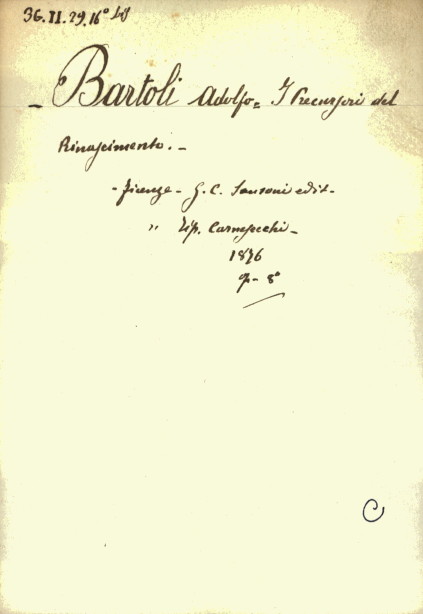 36.II.29.16º
– Bartoli Adolfo = I Precursori del
Rinascimento. –
- Firenze - G. C. Sansoni edit -
" Tip. Carnesecchi -
1876
8º
C